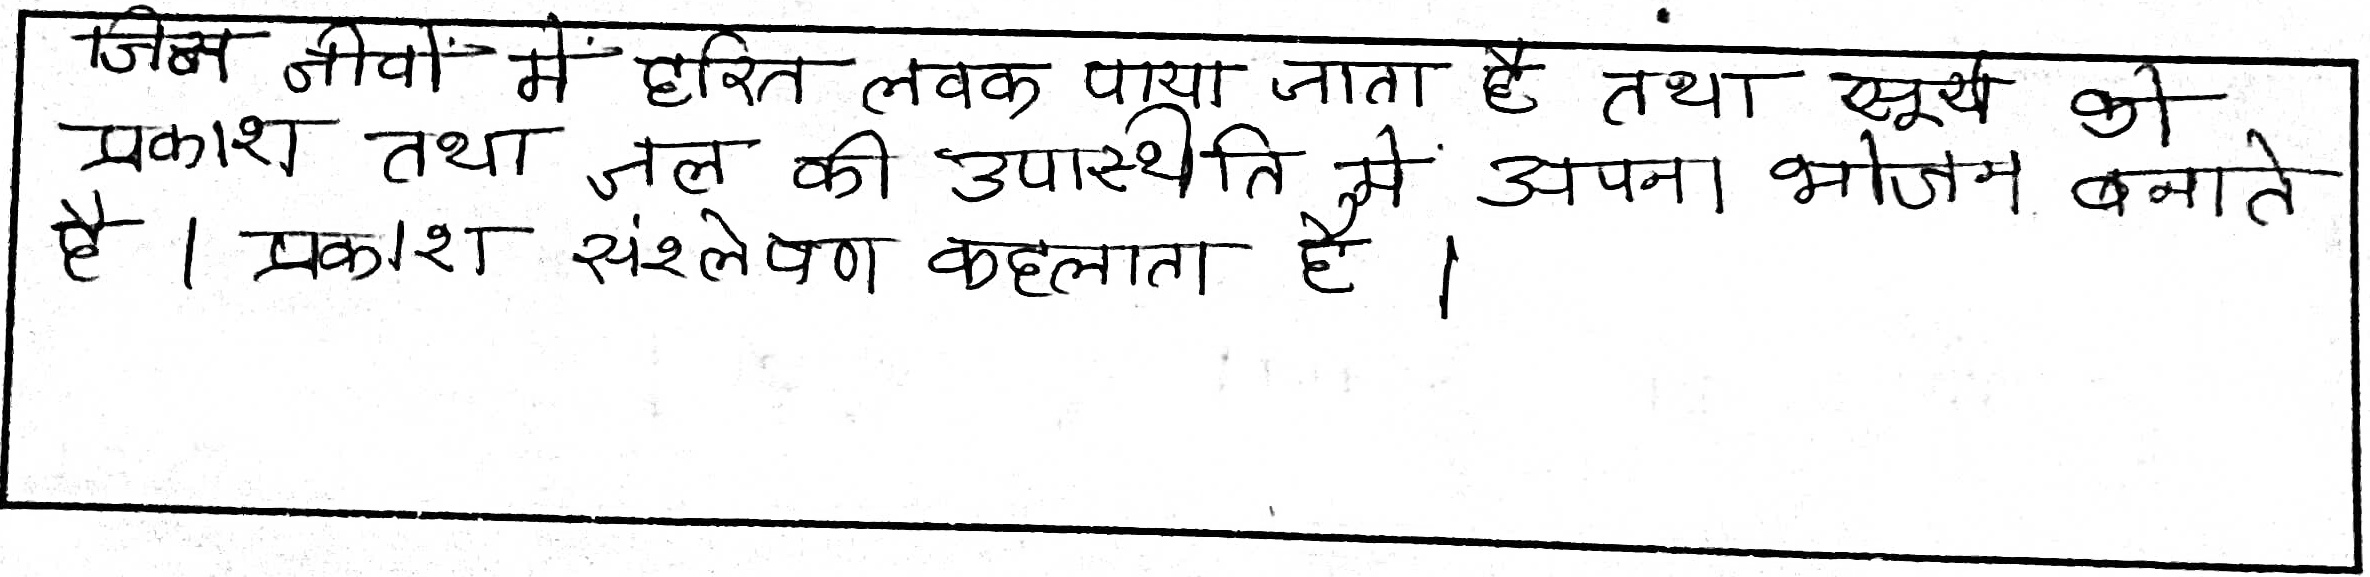 जिन जीवों में हरित लवक पाया जाता है तथा सूर्य की
प्रकाश तथा जल की उपास्थीति में अपना भोजन बनाते
है । प्रकाश संश्लेषण कहलाता है ।